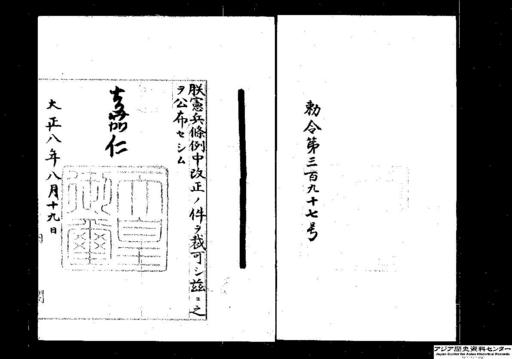 勅令第三百九十七号
朕憲兵條例中改正ノ件ヲ裁可シ茲ニ之
ヲ公布セシム
嘉仁
大正八年八月十九日
アジア歴史資料センター
Japan Center for Asian Historical Records